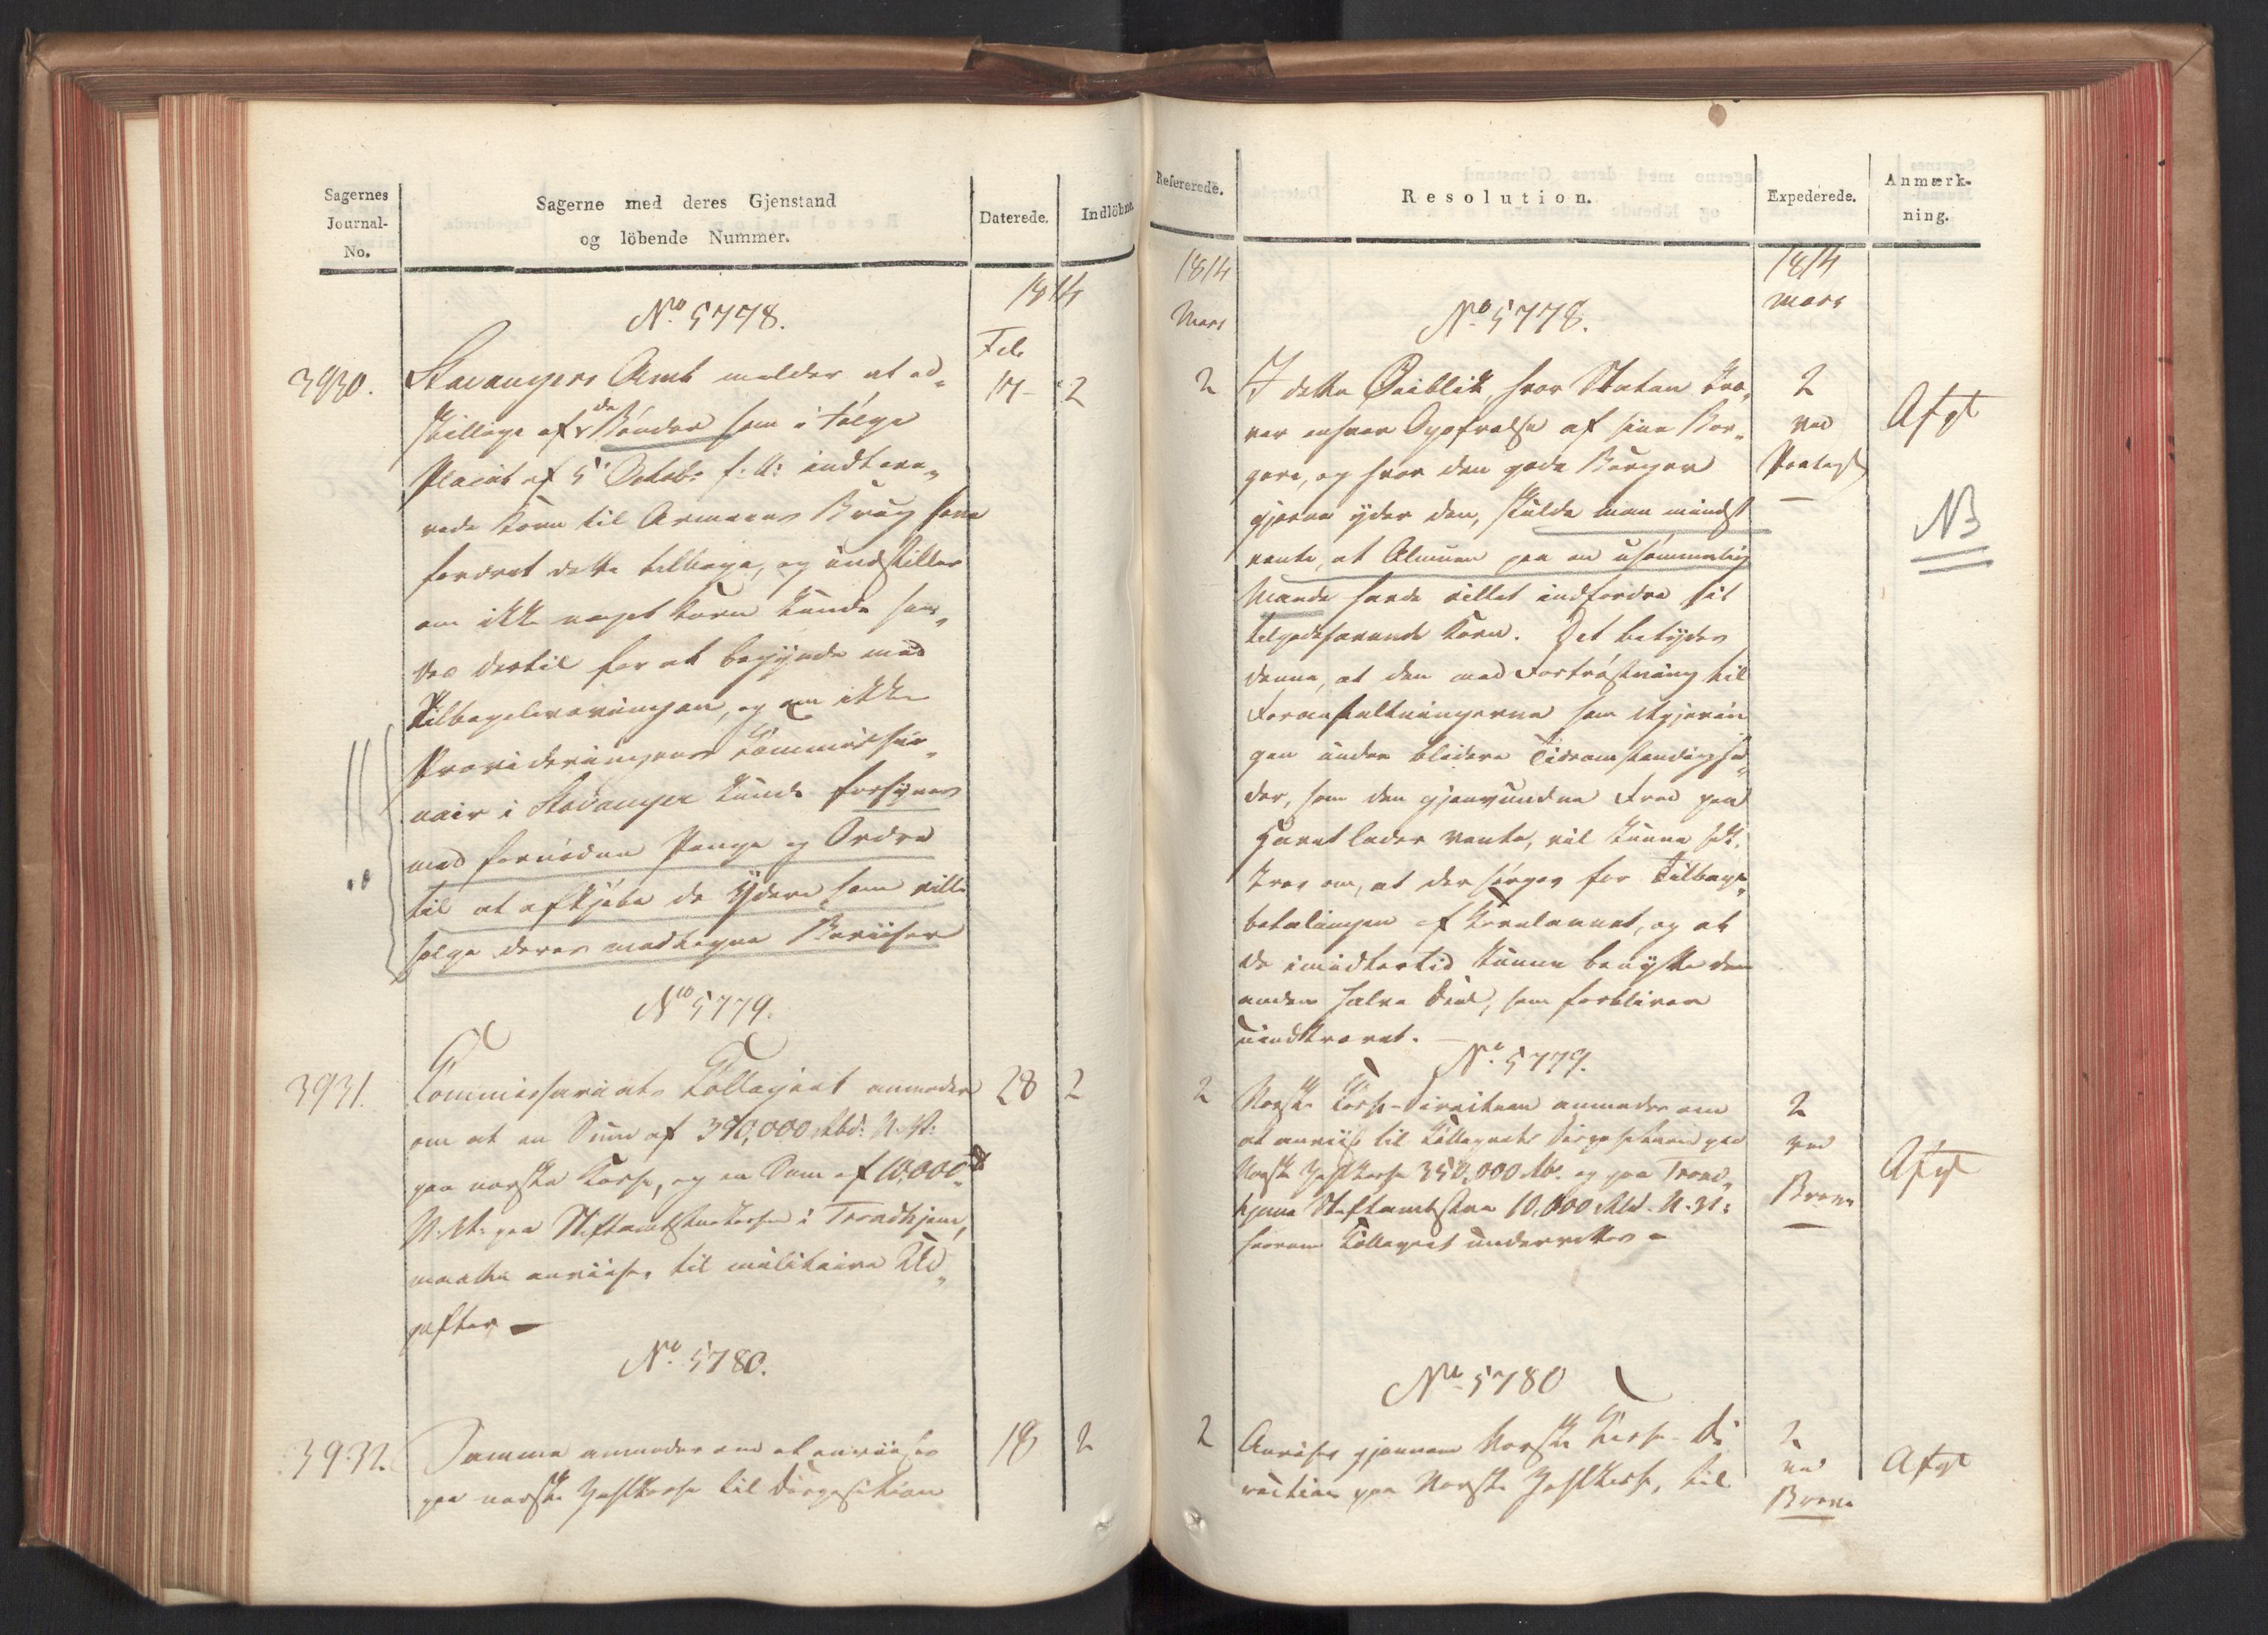 Sagernes
Journal-
No.
Sagerne med deres Gjenstand
og löbende Nummer.
Daterede.
Indlöbne
1814
Feb
No 5778.
3930.
Stavangers Amt melder at ad-
skillige af de Bönder som i fölge
Placat af 5 Octobr f: A: indleve-
rede Korn til Armeens Brug have
fordret dette tilbage, og indstiller
om ikke noget Korn kunde sen-
des dertil for at begynde med
Tilbageleveringen, og om ikke
Provideringens Commissio-
nair i Stavanger kunde forsynes
med fornödne Penge og Ordre
til at afkjöbe de Ydere som ville
sælge deres modtagne Beviiser
17
2
No 5779.
3931.
Commissariats Collegiet anmoder
om at en Sum af 350,000 Rbd: N. V:
paa norske Kasse, og en Sum af 10,000
N. V: paa Stiftamtstuekassen i Trondhjem,
maatte anviises til militaire Ud-
gifter —
28
2
No 5780.
3932.
Samme anmoder om at anviises
paa norske Zahlkasse til Disposition
18
2
Refererede.
Resolution.
Expederede.
Anmærk-
ning.
1814
Mars
1814
Mars
No 5778.
2
I dette Öieblik, hvor Staten kræ-
ver enhver Opofrelse af sine Bor-
gere, og hvor den gode Borger
gjerne yder den, skulde man mindst
vente, at Almuen paa en usömmelig
Maade havde villet indfordre sit
tilgodehavende Korn. Det betydes
denne, at den med Fortröstning til
Foranstaltningerne som Regjerin
gen under blidere Tidsomstændighe-
der, som den gjenvundne Fred paa
Havet lader vente, vil kunne
træf om, at der sörges for Tilbage-
betalingen af Kornlaanet, og at
de imidlertid kunne benytte den
anden halve Deel, som forbliver
uindkrævet. —
2
ved
Paategn
—
Afgt
NB
No 5779.
2
Norske Casse-Direction anmodes om
at anviise til Collegiets Disposition paa
Norske Zahlkasse 350,000 Rb. og paa Trond-
hjems Stiftamtstue 10,000 Rbd. N. V:
hvorom Collegiet underrettes —
2
ved
Breve
Afgt
No 5780
2
Anvises gjennem Norske Casse-Di
rection paa Norske Zahlkasse, til
2
ved
Breve
Afgt